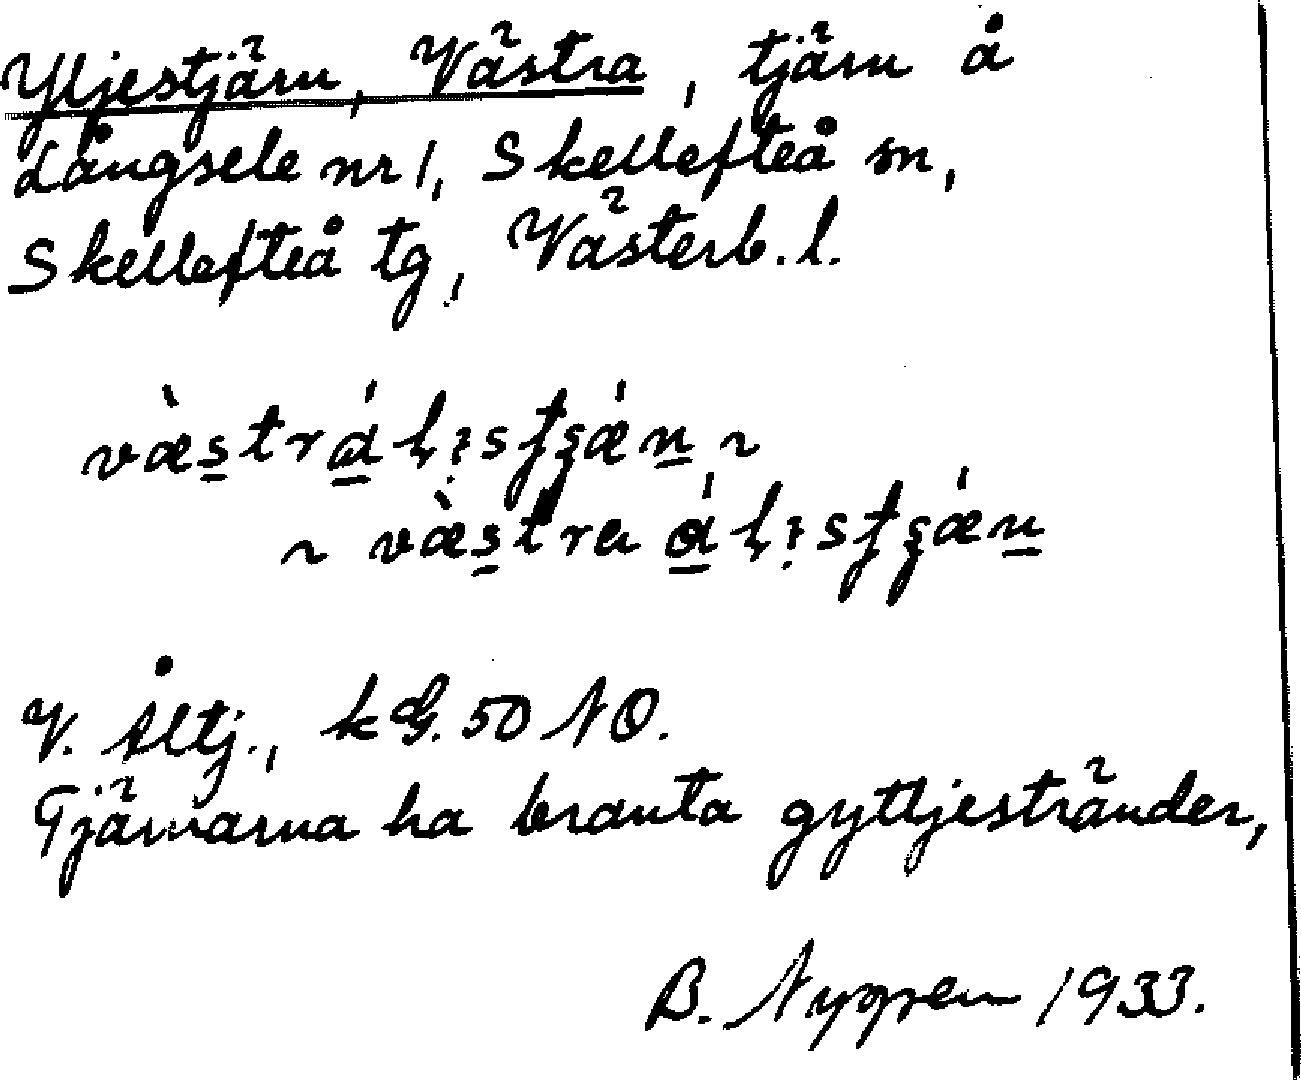 Yljestjärn, Västra, tjärn å
Långsele nr 1, Skellefteå sn,
Skellefteå tg, Västerb. l.
V. Åltj., kG. 50 NO.
Tjärnarna ha branta gyttjestränder,
B. Nygren 1933.